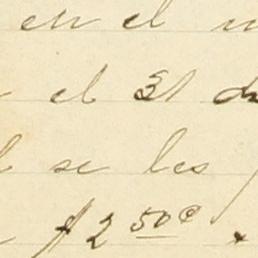 en el
el 31 de
se les
$2 50¢